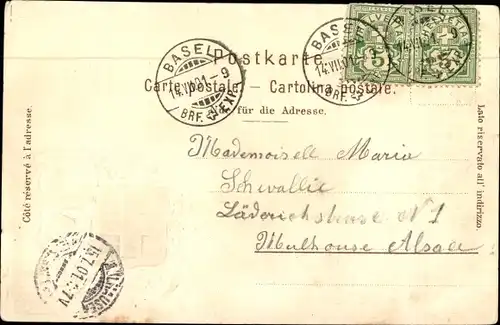 Postkarte.
Carte postale. — Cartolina postale.
Nur für die Adresse.
Côté réservé à l'adresse.
Lato riservato all' indirizzo.
HELVETIA
5
HELVETIA
5
BASEL
14.VII.01.-9
BRF. EXP.
BASEL
14.VII.01.-9
BRF. EXP.
BASEL
Mademoisell Maria
Schwallie
Läderichstrasse N° 1
Mulhouse Alsace
MÜLHAUSEN
15.7.01. 6-7V